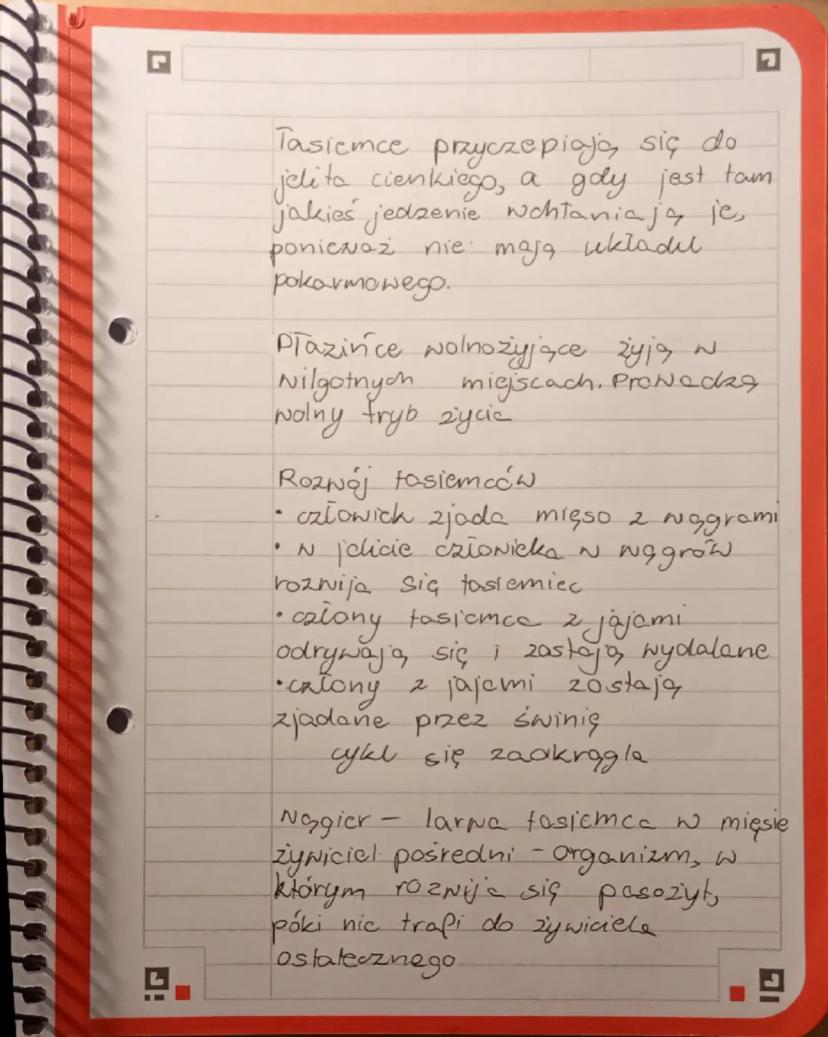 Tasiemce przyczepiają się do
jelita cienkiego, a gdy jest tam
jakieś jedzenie wchłaniają je,
ponieważ nie mają układu
pokarmowego.
Płazińce wolnożyjące żyją w
wilgotnych miejscach. Prowadzą
wolny tryb życia
Rozwój tasiemców
• człowiek zjada mięso z wągrami
• w jelicie człowieka w wągrów
rozwija się tasiemiec
• człony tasiemca z jajami
odrywają się i zostają wydalane
• człony z jajami zostają
zjadane przez świnię
cykl się zaokrągla
Wągier – larwa tasiemca w mięsie
żywiciel pośredni – organizm, w
którym rozwija się pasożyt,
póki nie trafi do żywiciela
ostatecznego